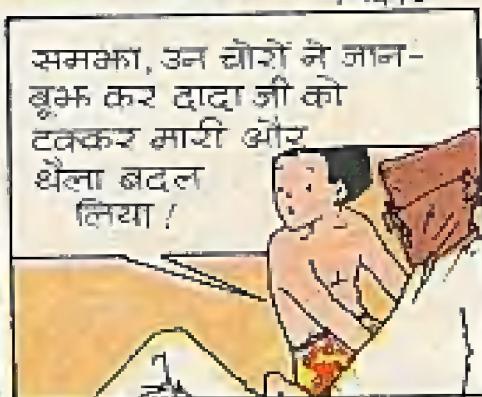 समझा, उन चोरों ने जान-
बूझ कर दादा जी को
टक्कर मारी और
थैला बदल
लिया !